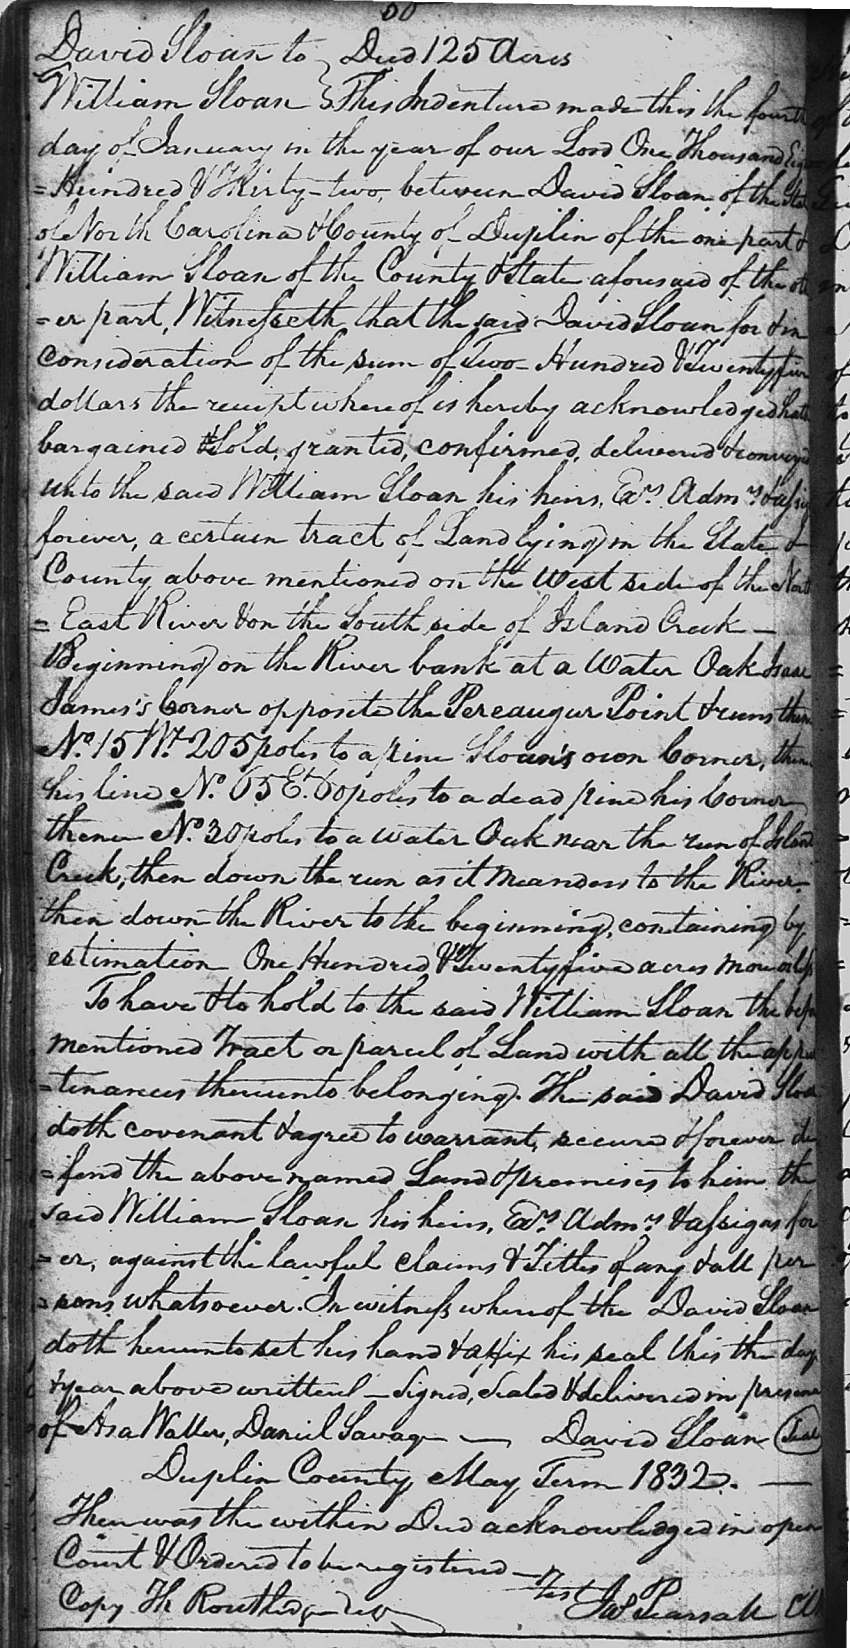 50
David Sloan to } Deed 125 Acres
William Sloan } This Indenture made this the fourth
day of January in the year of our Lord One Thousand Eigh
=Hundred & Thirty-two, between David Sloan of the State
of North Carolina & County of Duplin of the one part &
William Sloan of the County & State aforesaid of the oth
=er part, Witnesseth that the said David Sloan for & in
consideration of the sum of Two Hundred & Twenty five
dollars the receipt whereof is hereby acknowledged hath
bargained & Sold, granted, confirmed, delivered & conveyed
unto the said William Sloan his heirs, Exrs. Admrs. & assig
forever, a certain tract of Land lying in the State &
County above mentioned on the West side of the North
=East River & on the South side of Island Creek —
Beginning on the River bank at a Water Oak Isaac
James's Corner opposite the Pereaugur Point & runs then
No. 15 Wt. 205 poles to a pine Sloan's own Corner, then
his line No. 65 Et. 60 poles to a dead pine his Corner
thence No. 30 poles to a water Oak near the run of Island
Creek, then down the run as it Meanders to the River
then down the River to the beginning, containing by
estimation One Hundred & Twenty five acres more or less
To have & to hold to the said William Sloan the before
mentioned Tract or parcel of Land with all the appur
=tinances thereunto belonging. The said David Sloan
doth covenant & agree to warrant, secure & forever de
=fend the above named Land & premises to him the
said William Sloan his heirs, Exrs. Admrs. & assigns for
=er, against the lawful claims & Titles of any & all per
=sons whatsoever. In witness whereof the David Sloan
doth hereunto set his hand & affix his seal this the day
& year above written — Signed, Sealed & delivered in presence
of Asa Waller, Daniel Savage — David Sloan (Seal)
Duplin County May Term 1832. —
Then was the within Deed acknowledged in open
Court & Ordered to be registered — Test Jas Pearsall
Copy Th Routledge